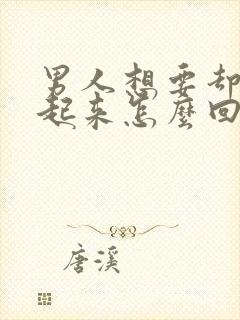 男人想要却
起来怎麼回
唐溪